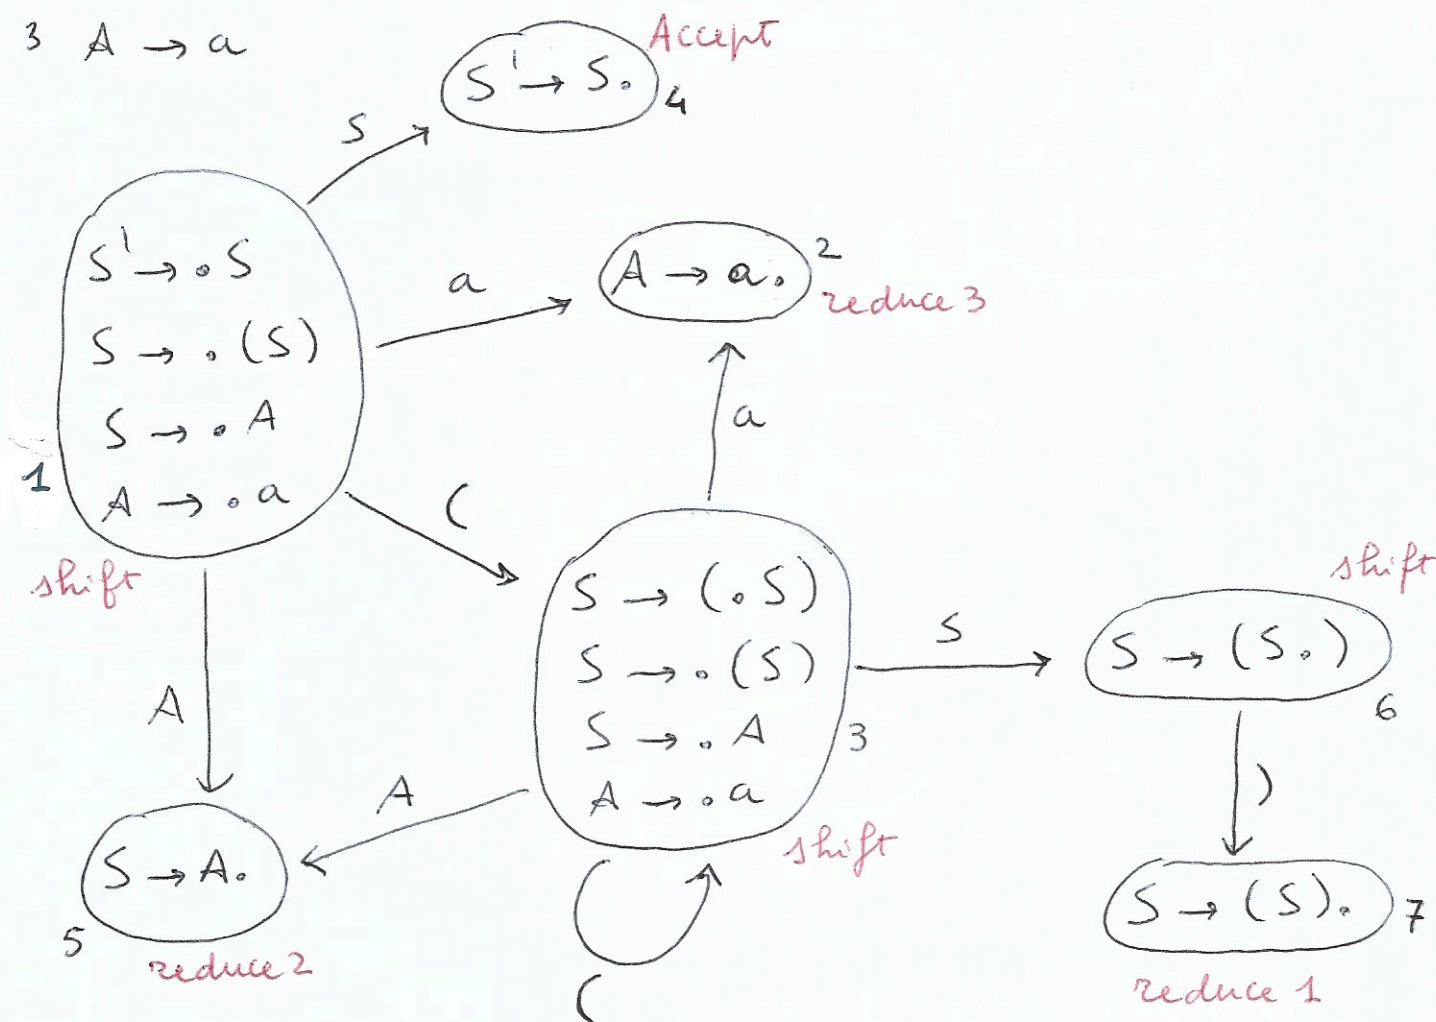 3 A → a
S' → S.
Accept
4
S
S' → .S
S → .(S)
S → .A
A → .a
1
shift
a
A → a.
2
reduce 3
a
(
S → (.S)
S → .(S)
S → .A
A → .a
3
shift
(
S
shift
S → (S.)
6
)
S → (S).
7
reduce 1
A
A
S → A.
5
reduce 2